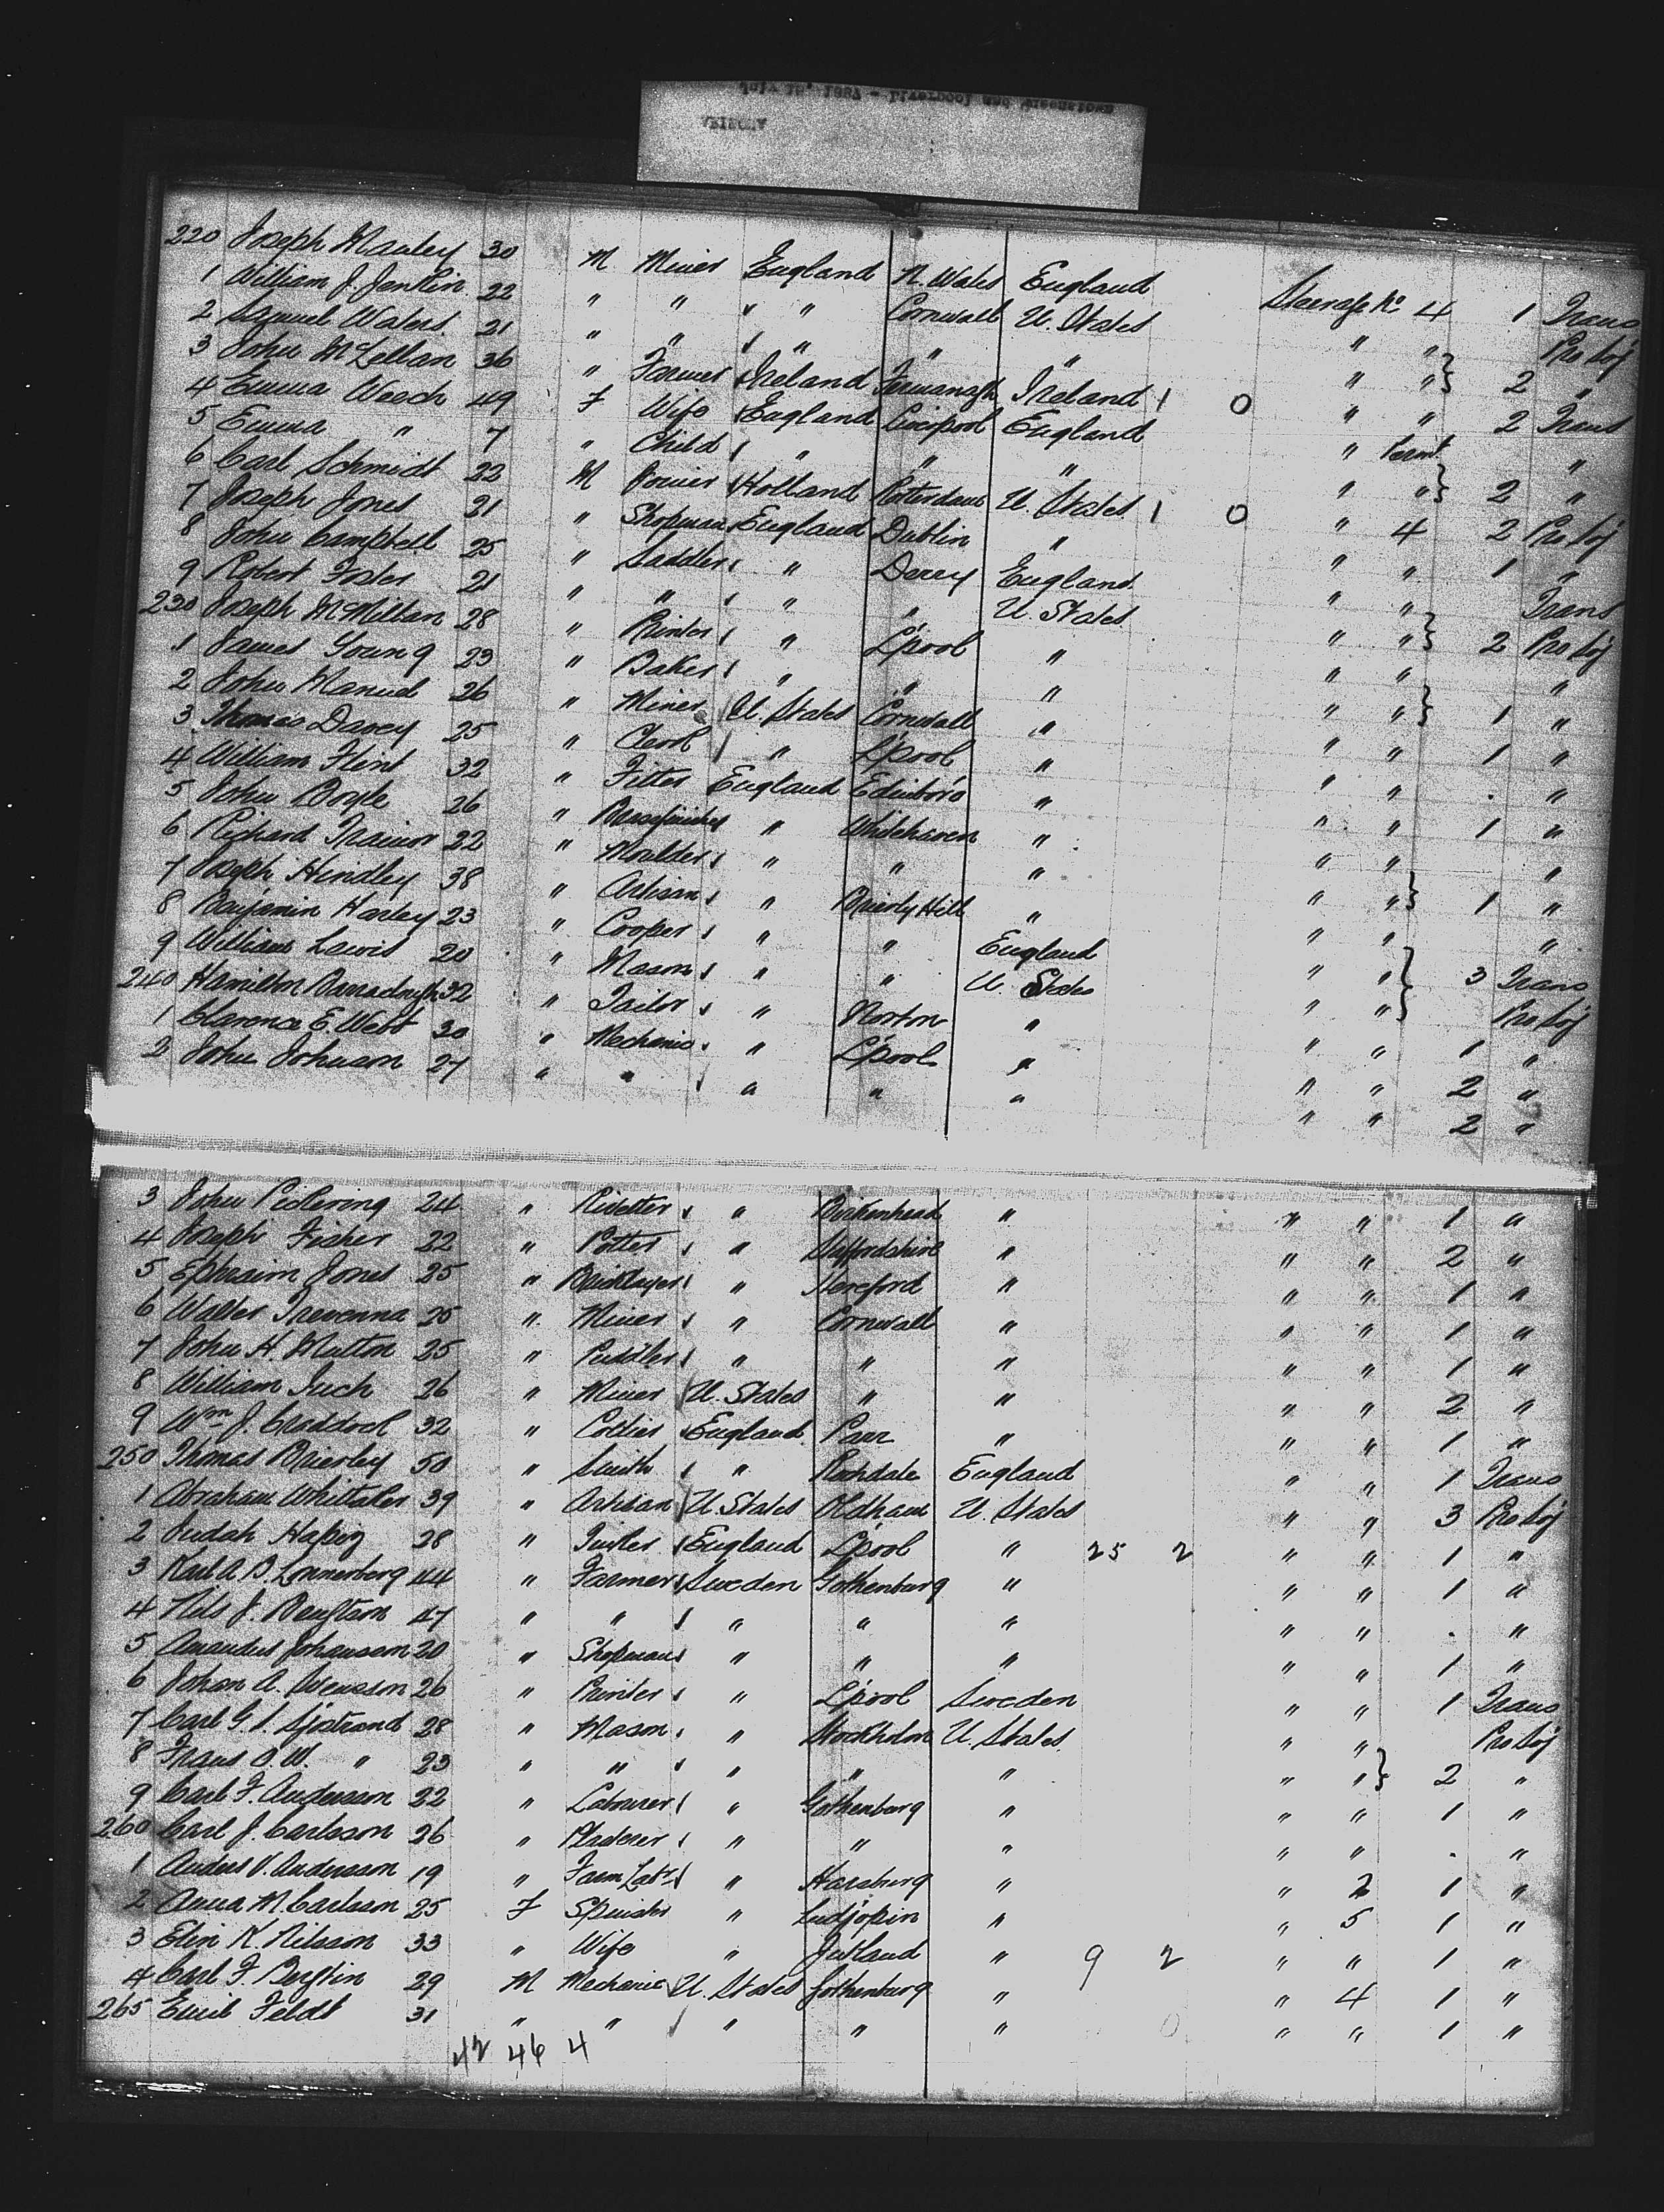 July 18, 1887 - Liverpool and Queenstown
220 Joseph Manley 30 M Miner England N. Wales England Steerage No 4 1 Trans
1 William J. Jenkin 22 " " " Cornwall U. States " " Pro Soj
2 Samuel Waters 21 " " " " " " " } 2 "
3 John McLellan 36 " Farmer Ireland Fermanagh Ireland 1 0 " " 2 Trans
4 Emma Weech 49 F Wife England Liverpool England " "
5 Emma " 7 " Child " " " " " } 2 "
6 Carl Schmidt 22 M Holland Rotterdam U. States 1 0 " 4 2 Pro Soj
7 Joseph Jones 21 " Shopman England Dublin " " " 1 "
8 John Campbell 25 " Saddler " Derry England " " Trans
9 Robert Foster 21 " " " " U. States " " } 2 Pro Soj
230 Joseph McMillan 28 " Printer " L'pool " " " "
1 James Young 23 " Baker " " " " " } 1 "
2 John Manuel 26 " Miner U. States Cornwall " " " 1 "
3 Thomas Davey 25 " Clerk " L'pool " " " . "
4 William Flint 32 " Fitter England Edinboro " " " 1 "
5 John Doyle 26 " Brassfinisher " Whitehaven " " " "
6 Richard Trainor 22 " Moulder " " " " " } 1 "
7 Joseph Hindley 38 " Artisan " Brierly Hill " " " "
8 Benjamin Harley 23 " Cooper " " England " " } 3 Trans
9 William Lewis 20 " Mason " " U. States " " Pro Soj
240 Hamilton 32 " Tailor " Norton " " " 1 "
1 Clarence E. Webb 30 " Mechanic " L'pool " " " 2 "
2 John Johnson 27 " " " " " " " 2 "
3 John Pickering 24 " Rivetter " Birkenhead " " " 1 "
4 Joseph Fisher 22 " Potter " Staffordshire " " " 2 "
5 Ephraim Jones 25 " Bricklayer " Hereford " " " 1 "
6 Walter Trevenna 25 " Miner " Cornwall " " " 1 "
7 John H. Mutton 25 " Puddler " " " " " 1 "
8 William Inch 26 " Miner U. States " " " " 2 "
9 Wm J. Craddock 32 " Collier England Parr " " " 1 "
250 Thomas Brierley 50 " Smith " Rochdale England " " 1 Trans
1 Abraham Whittaker 39 " Artisan U. States Oldham U. States " " 3 Pro Soj
2 Judah 28 " England L'pool " 25 2 " " 1 "
3 Karl A. B. Lonnerberg 44 " Farmer Sweden Gothenburg " " " 1 "
4 Nils J. Bengtson 47 " " " " " " " . "
5 Amandus Johansson 20 " Shopman " " " " " 1 "
6 Johan A. Svensson 26 " Printer " L'pool Sweden " " 1 Trans
7 Carl G. S. Sjostrand 28 " Mason " Stockholm U. States " " Pro Soj
8 Frans O. W. " 23 " " " " " " " } 2 "
9 Carl F. Andersson 22 " Labourer " Gothenburg " " " 1 "
260 Carl J. Carlsson 26 " Plasterer " " " " " . "
1 Anders V. Andersson 19 " Farm Labr " " " 2 1 "
2 Anna M. Carlsson 25 F Spinster " " " 5 1 "
3 Elin K. Nilsson 33 " Wife " Jutland " 9 2 " " 1 "
4 Carl F. 29 M Mechanic U. States Gothenburg " " 4 1 "
265 Emil Feldt 31 " " " " " 0 " " 1 "
42 46 4